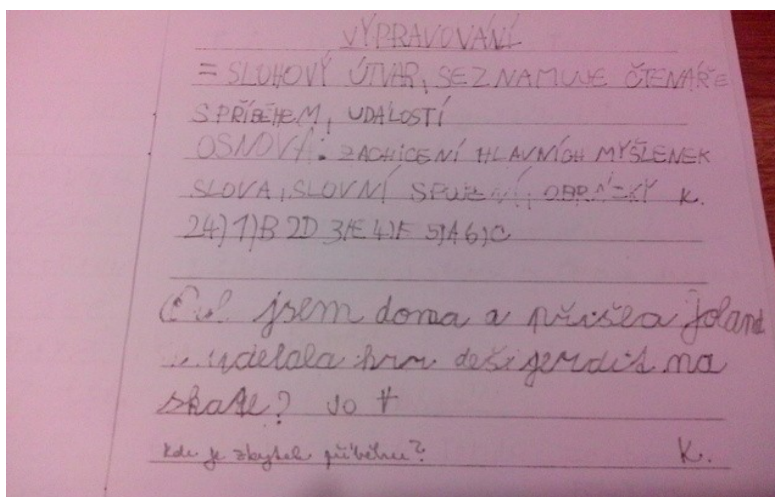 VYPRAVOVÁNÍ
= SLOHOVÝ ÚTVAR, SEZNAMUJE ČTENÁŘE
S PŘÍBĚHEM, UDÁLOSTÍ
OSNOVA: ZACHICENÍ HLAVNÍCH MYŠLENEK
SLOVA, SLOVNÍ SPOJENÍ, OBRÁZKY K.
24) 1)B 2D 3)E 4)F 5)A 6)C
jsem doma a přišla Joland
udelala hrr deš jezdit na
skate? jo
kde je zbytek příběhu? K.